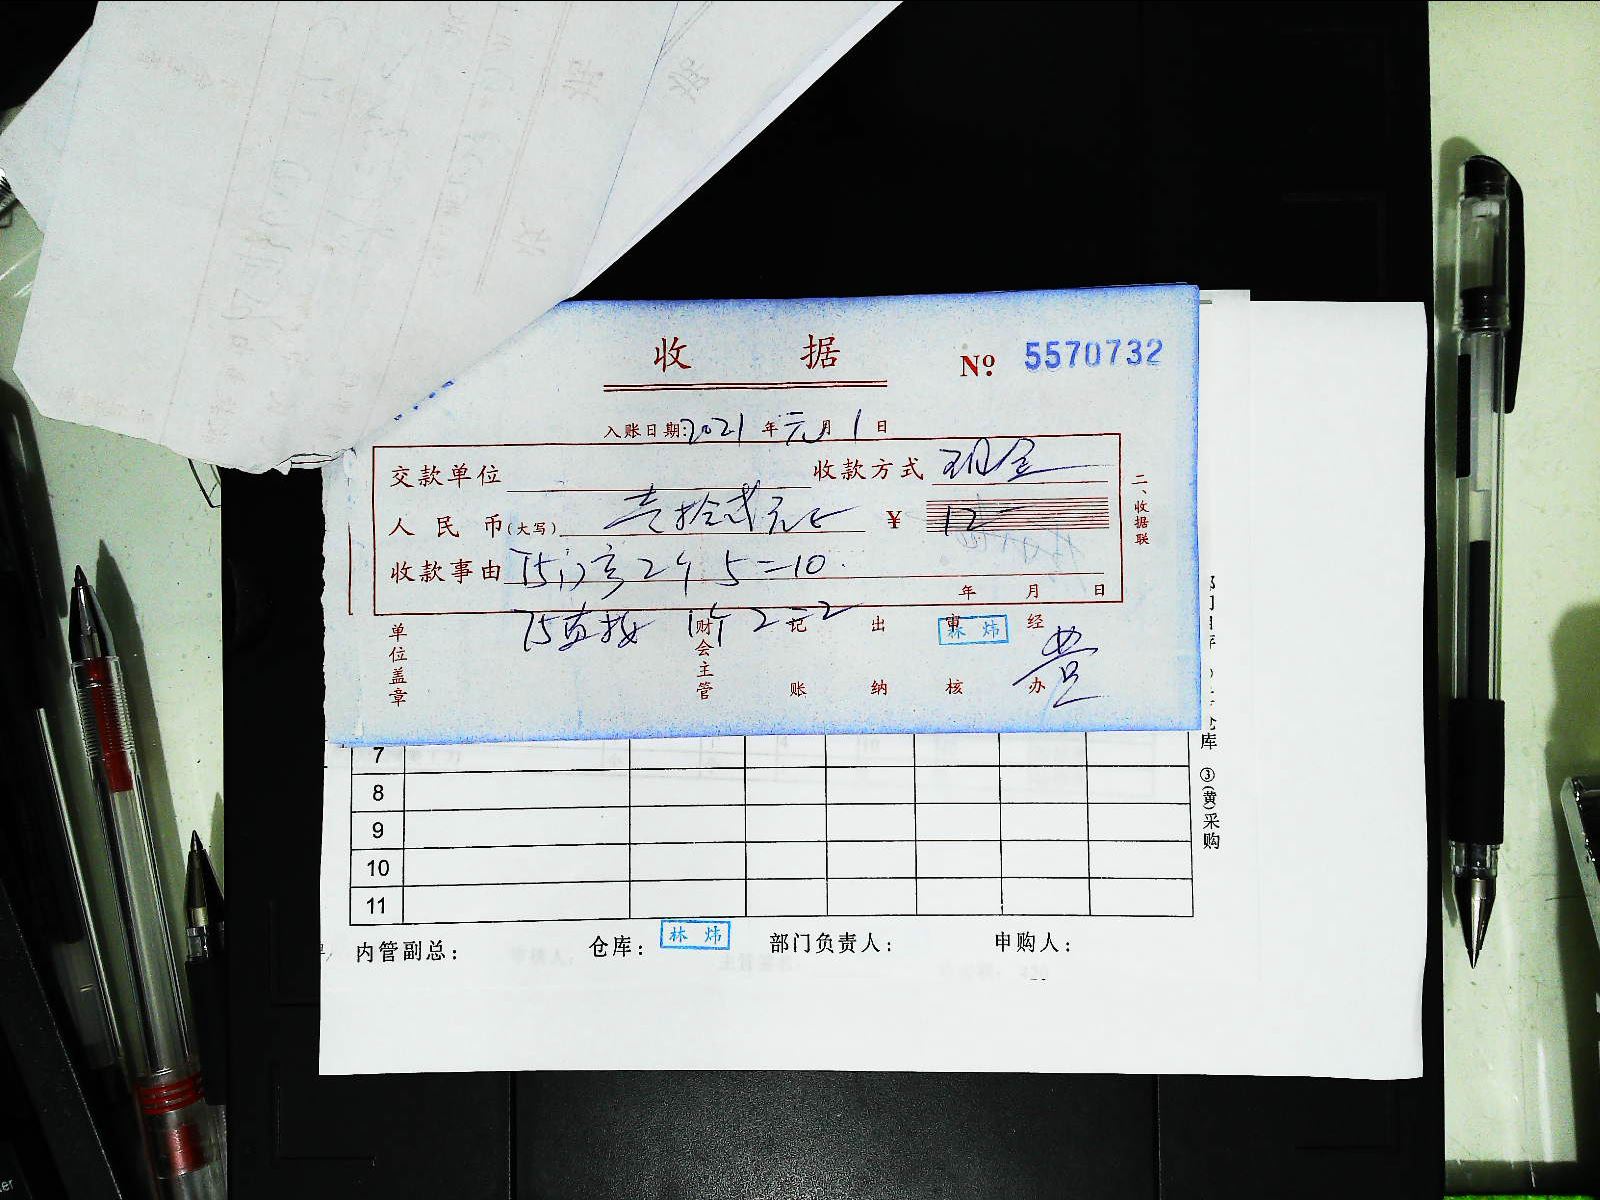 收 据
№ 5570732
入账日期:2021 年 元 月 1 日
交款单位 收款方式 现金
人民币(大写) 壹拾贰元正 ¥ 12-
收款事由 75 2个 5=10.
年 月 日
75直接 1个 2=2
单位盖章 财会主管 记账 出纳 审核 经办
林炜
黄
二、收据联
7
8
9
10
11
库 ③(黄)采购
内管副总: 仓库: 林炜 部门负责人: 申购人: